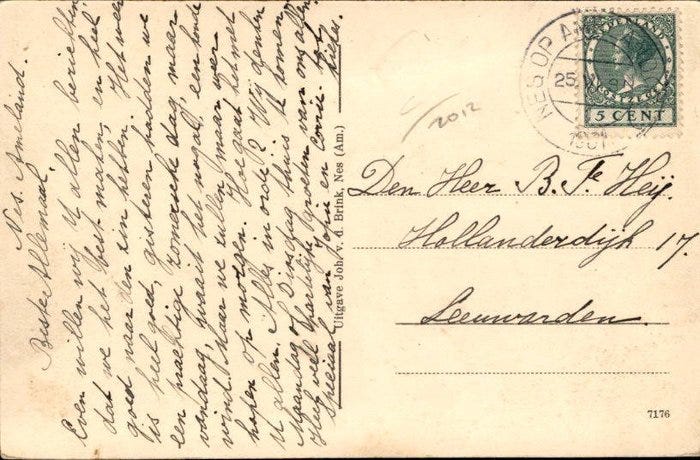 Nes. Ameland.
Beste Allemaal,
Even willen wij U allen berichten
dat we het best maken, en heel
goed naar den zin hebben. Het weer
is heel goed, gisteren hadden we
een prachtige zomersche dag, maar
vandaag waait het nogal, een koude
wind. Maar we zullen maar weer
hopen op morgen. Hoe gaat het met
U allen? Alles in orde? Wij denken
Maandag of Dinsdag thuis te komen.
Nu, veel hartelijke groeten van ons allen,
speciaal van Jopie en Corrie.
Uitgave Joh. v. d. Brink, Nes (Am.)
NES OP A
25
1931
NEDERLAND
5 CENT
2012
Den Heer B. Te Hey.
Hollanderdijk 17.
Leeuwarden.
7176